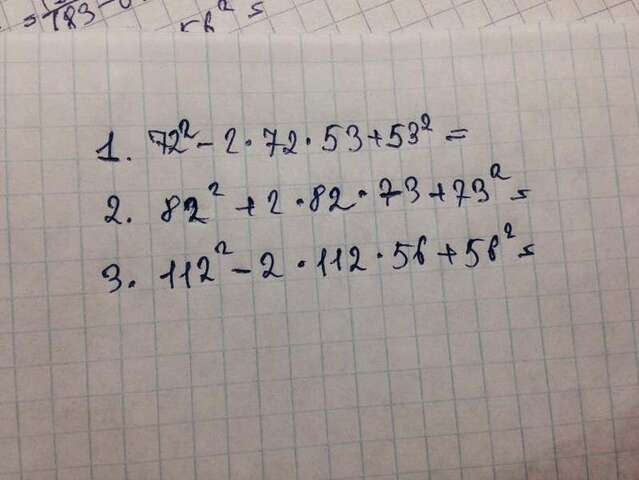 =183-
² =
1. 72² - 2 · 72 · 53 + 53² =
2. 82² + 2 · 82 · 73 + 73² =
3. 112² - 2 · 112 · 56 + 56² =